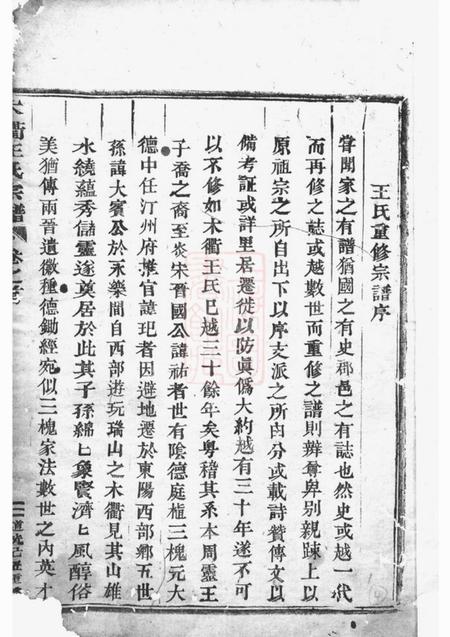 王氏重修宗譜序
嘗聞家之有譜猶國之有史郡邑之有誌也然史或越一代
而再修之誌或越數世而重修之譜則辨尊卑别親踈上以
原祖宗之所自出下以序支派之所由分或載詩贊傳文以
備考証或詳里居遷徙以防眞僞大約越有三十年遂不可
以不修如木衢王氏已越三十餘年矣粤稽其系本周靈王
子喬之裔至炎宋晉國公諱祐者世有隂德庭植三槐元大
德中任汀州府推官諱玘者因避地遷於東陽西部鄉五世
孫諱大賓公於永樂間自西部遊玩瑞山之木衢見其山雄
水繞蘊秀儲靈遂奠居於此其子孫綿匕象賢濟匕風醇俗
美猶傳兩晉遺徽種德鋤經宛似三槐家法數世之内英才
木衢王氏宗譜 卷之
一 道光己